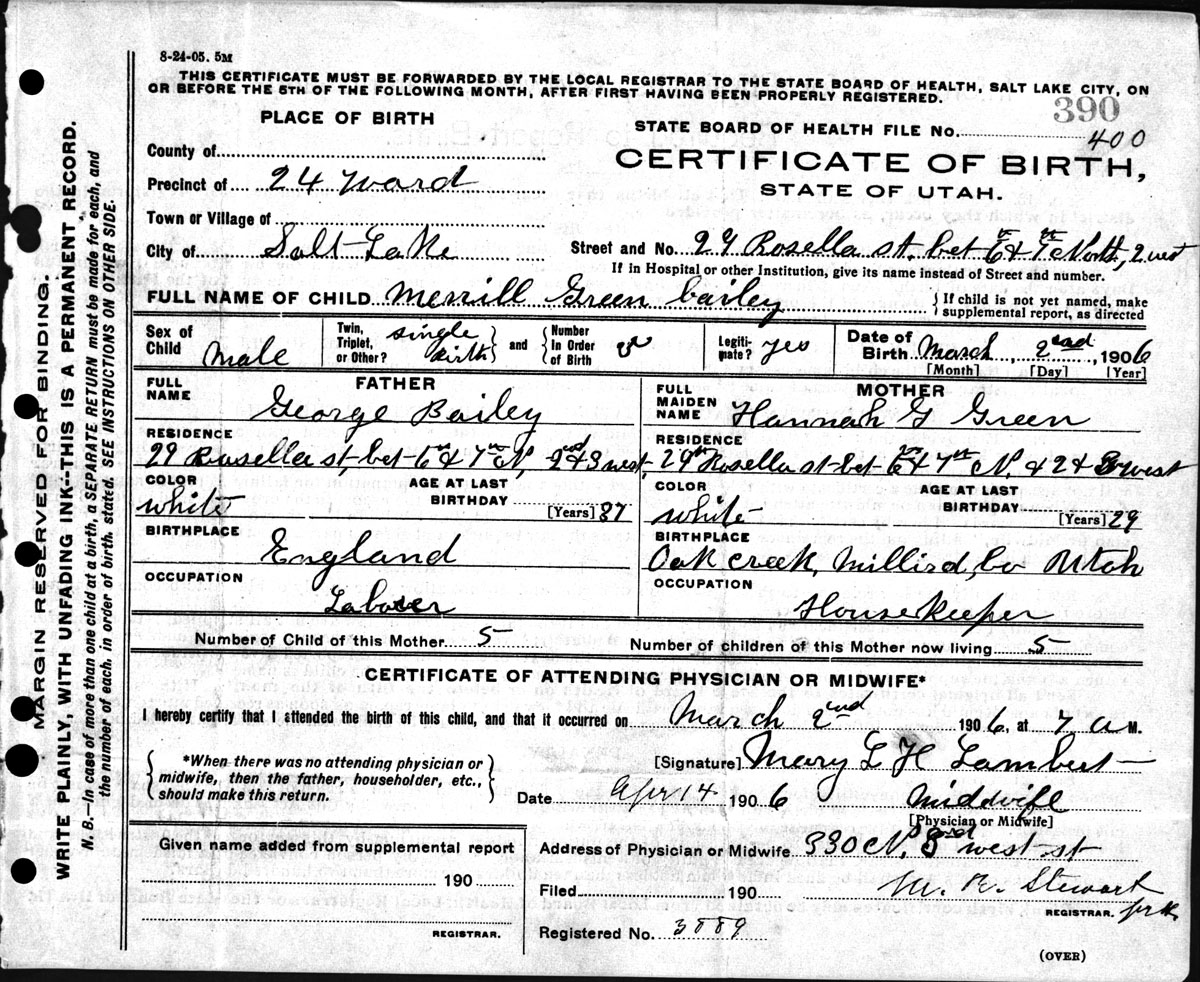 8-24-05. 5M
THIS CERTIFICATE MUST BE FORWARDED BY THE LOCAL REGISTRAR TO THE STATE BOARD OF HEALTH, SALT LAKE CITY, ON
OR BEFORE THE 5TH OF THE FOLLOWING MONTH, AFTER FIRST HAVING BEEN PROPERLY REGISTERED.
390
PLACE OF BIRTH
STATE BOARD OF HEALTH FILE No. 400
County of
CERTIFICATE OF BIRTH,
Precinct of 24 ward
STATE OF UTAH.
Town or Village of
City of Salt Lake Street and No. 29 Rosella st. bet 6th & 7th North, 2 west
If in Hospital or other Institution, give its name instead of Street and number.
FULL NAME OF CHILD Merrill Green bailey { If child is not yet named, make supplemental report, as directed
Sex of Child Male
Twin, Triplet, or Other? single birth } and { Number In Order of Birth
Legiti-mate? yes
Date of Birth March, 2nd, 1906
[Month] [Day] [Year]
FATHER
FULL NAME George Bailey
RESIDENCE
29 Rosella st, bet 6th & 7th N, 2nd & 3 west,
COLOR white
AGE AT LAST BIRTHDAY 37 [Years]
BIRTHPLACE England
OCCUPATION Laborer
MOTHER
FULL MAIDEN NAME Hannah G Green
RESIDENCE
29 Rosella st bet 6th & 7th N, & 2 & 3 west
COLOR white
AGE AT LAST BIRTHDAY [Years] 29
BIRTHPLACE
Oak creek, Millird, co Utah
OCCUPATION
House Keeper
Number of Child of this Mother 5 Number of children of this Mother now living 5
CERTIFICATE OF ATTENDING PHYSICIAN OR MIDWIFE*
I hereby certify that I attended the birth of this child, and that it occurred on March 2nd 1906, at 7 a M.
{ *When there was no attending physician or midwife, then the father, householder, etc., should make this return. }
[Signature] Mary L H Lambert
Date Apr 14 1906 Midwife
[Physician or Midwife]
Given name added from supplemental report
190
REGISTRAR.
Address of Physician or Midwife 330 N, 3rd west st
Filed 190 M. R. Stewart
REGISTRAR.
Registered No. 3889
(OVER)
MARGIN RESERVED FOR BINDING.
WRITE PLAINLY, WITH UNFADING INK--THIS IS A PERMANENT RECORD.
N. B.—In case of more than one child at a birth, a SEPARATE RETURN must be made for each, and
the number of each, in order of birth, stated. SEE INSTRUCTIONS ON OTHER SIDE.